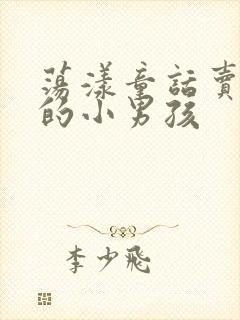 荡漾童話賣
的小男孩
李少飛